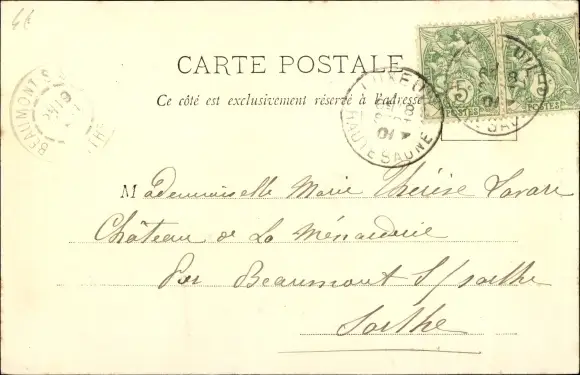 4t
CARTE POSTALE
Ce côté est exclusivement réservé à l'adresse
LUXEUIL
8
01
HAUTE SAÔNE
5c
POSTES
5c
POSTES
BEAUMONT S
19
Mademoiselle Marie Thérèse Lavare
Château de La Ménarderie
Par Beaumont S/sarthe
Sarthe